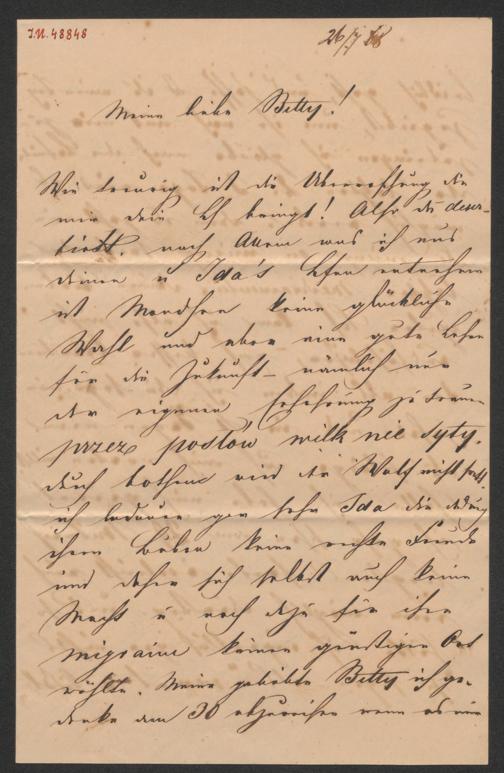 I.N. 48848
26/7 88
Meine liebe Betty!
Wie traurig ist die Überraschung die
mir dein Bf bringt! Also du deser-
tirst, nach Allem was ich aus
deinen u Ida's Bfen entnehme
ist keine glückliche
Wahl und aber eine gute Lehre
für die Zukunft – nämlich nur
der eigenen Erfahrung zu trauen
przez posłów wilk nie syty.
durch bothen wird der Wolf nicht satt.
ich bedauere gar sehr Ida die
ihren Buben keine rechte Freude
und daher sich selbst auch keine
macht u noch dazu für ihre
migraine keinen günstigen Ort
wählte. Meine geliebte Betty ich ge-
denke am 30 abzureisen wenn es mir